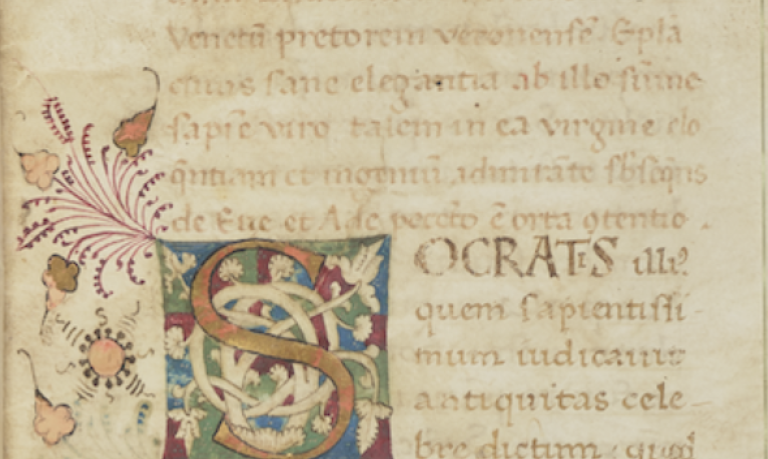 Venetũ pretorem veronensẽ. Epla
cuius sane elegantia ab illo sũme
sapiẽ viro talem in ea virgine elo
q̃ntiam et ingeniũ admirãte sbseq̃ns
de Eue et Ade peccto ẽ orta 9tentio.
SOCRATIS illiꝰ
quem sapientissi-
mum iudicauit
antiquitas cele-
bre dictum